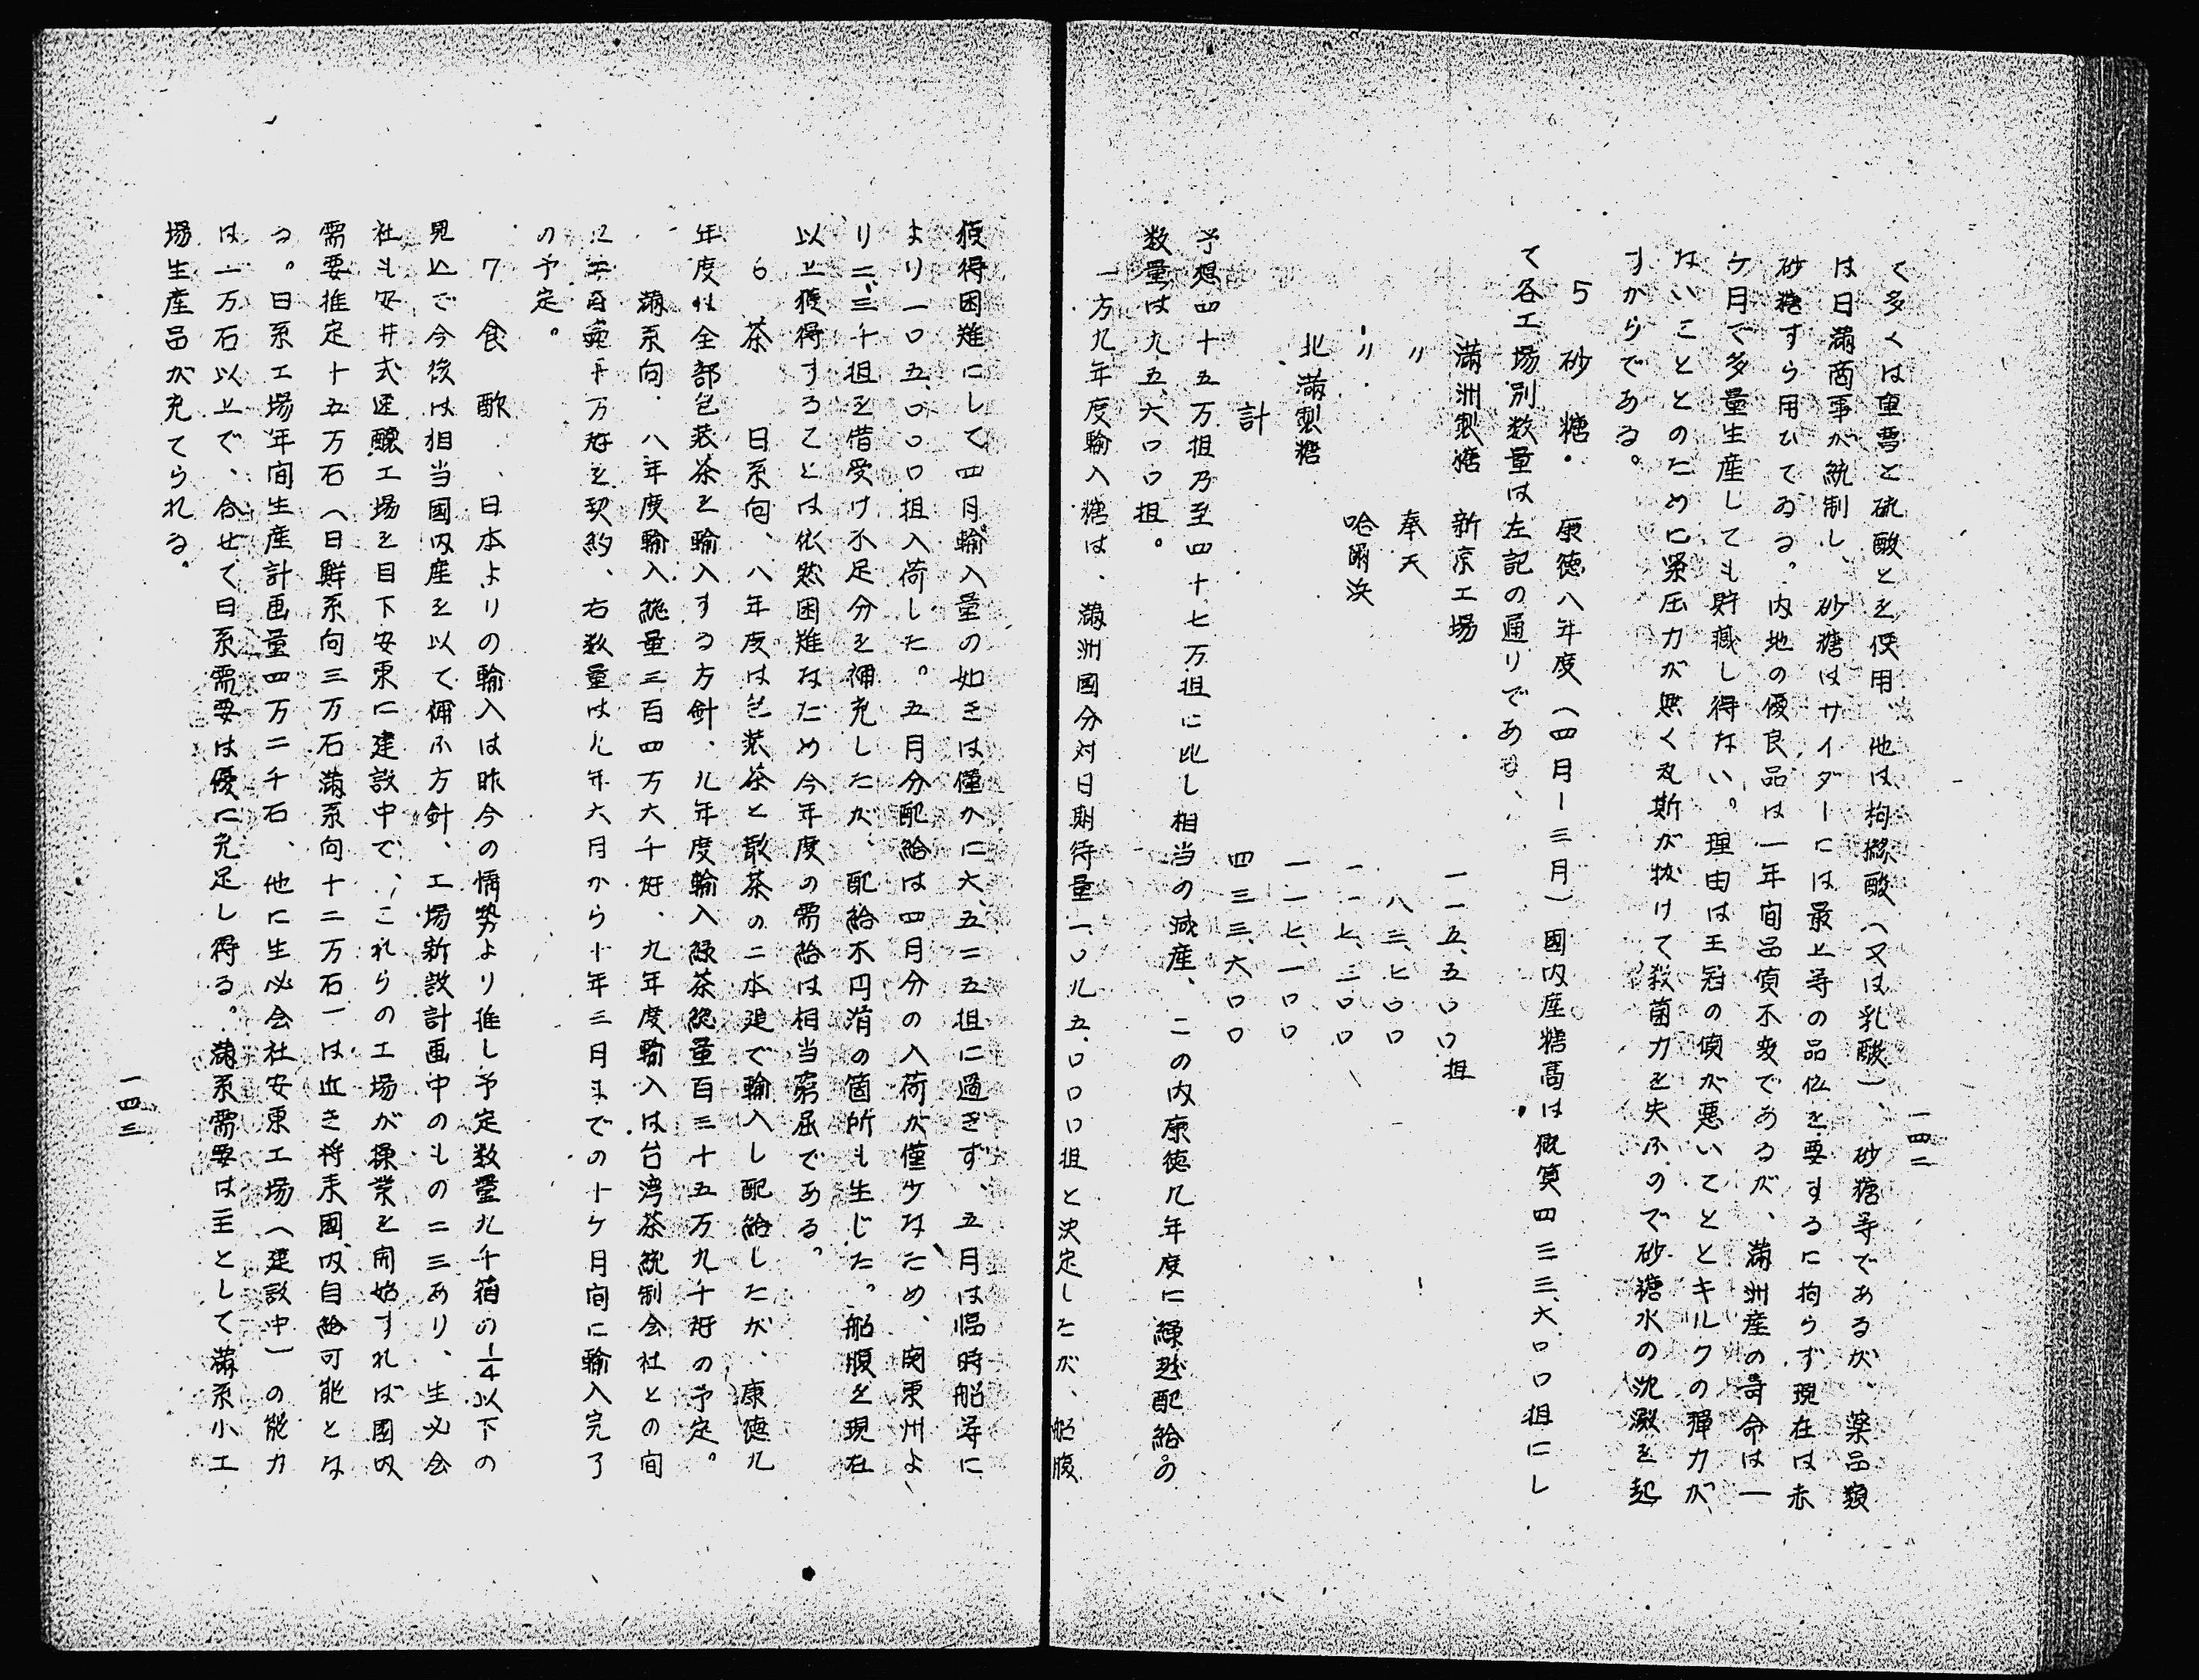 一四二
く多くは重曹と硫酸とを使用、他は拘櫞酸(又は乳酸)、砂糖等であるが、薬品類
は日満商事が統制し、砂糖はサイダーには最上等の品位を要するに拘らず現在は赤
砂糖すら用ひてゐる。内地の優良品は一年間品質不変であるが、満洲産の寿命は一
ケ月で多量生産しても貯蔵し得ない。理由は王冠の質が悪いこととキルクの弾力が
ないこととのために緊圧力が無く瓦斯が抜けて殺菌力を失ふので砂糖水の沈澱を起
すからである。
5 砂糖 康徳八年度(四月ー三月)國内産糖高は概算四三三、六〇〇担にし
て各工場別数量は左記の通りである、
満洲製糖 新京工場 一一五、五〇〇担
〃 奉天 八三、七〇〇
〃 哈爾浜 一一七、三〇〇
北満製糖 一一七、一〇〇
計 四三三、六〇〇
予想四十五万担乃至四十七万担に比し相当の減産、この内康徳九年度に繰越配給の
数量は九五、六〇〇担。
一方九年度輸入糖は、満洲國分対日期待量一、〇九五、〇〇〇担と決定したが、船腹
獲得困難にして四月輸入量の如きは僅かに六、五二五担に過ぎず、五月は臨時船等に
より一〇五、〇〇〇担入荷した。五月分配給は四月分の入荷が僅少なため、関東州よ
り二、三千担を借受け不足分を補充したが、配給不円滑の箇所も生じた。船腹を現在
以上獲得することは依然困難なため今年度の需給は相当窮屈である。
6 茶 日系向、八年度は包装茶と散茶の二本建で輸入し配給したが、康徳九
年度は全部包装茶を輸入する方針、九年度輸入緑茶総量百三十五万九千瓩の予定。
満系向、八年度輸入総量三百四万六千瓩、九年度輸入は台湾茶統制会社との間
に 万瓩を契約、右数量は九年六月から十年三月までの十ケ月間に輸入完了
の予定。
7 食酢 、日本よりの輸入は昨今の情勢より推し予定数量九千箱の1/4以下の
見込で今後は相当国内産を以て補ふ方針、工場新設計画中のもの二三あり、生必会
社も安井式速醸工場を目下安東に建設中で、これらの工場が操業を開始すれば國内
需要推定十五万石(日鮮系向三万石満系向十二万石)は近き将来國内自給可能とな
る。日系工場年間生産計画量四万二千石、他に生必会社安東工場(建設中)の能力
は一万石以上で、合せて日系需要は優に充足し得る。満系需要は主として満系小工
場生産品が充てられる。
一四三